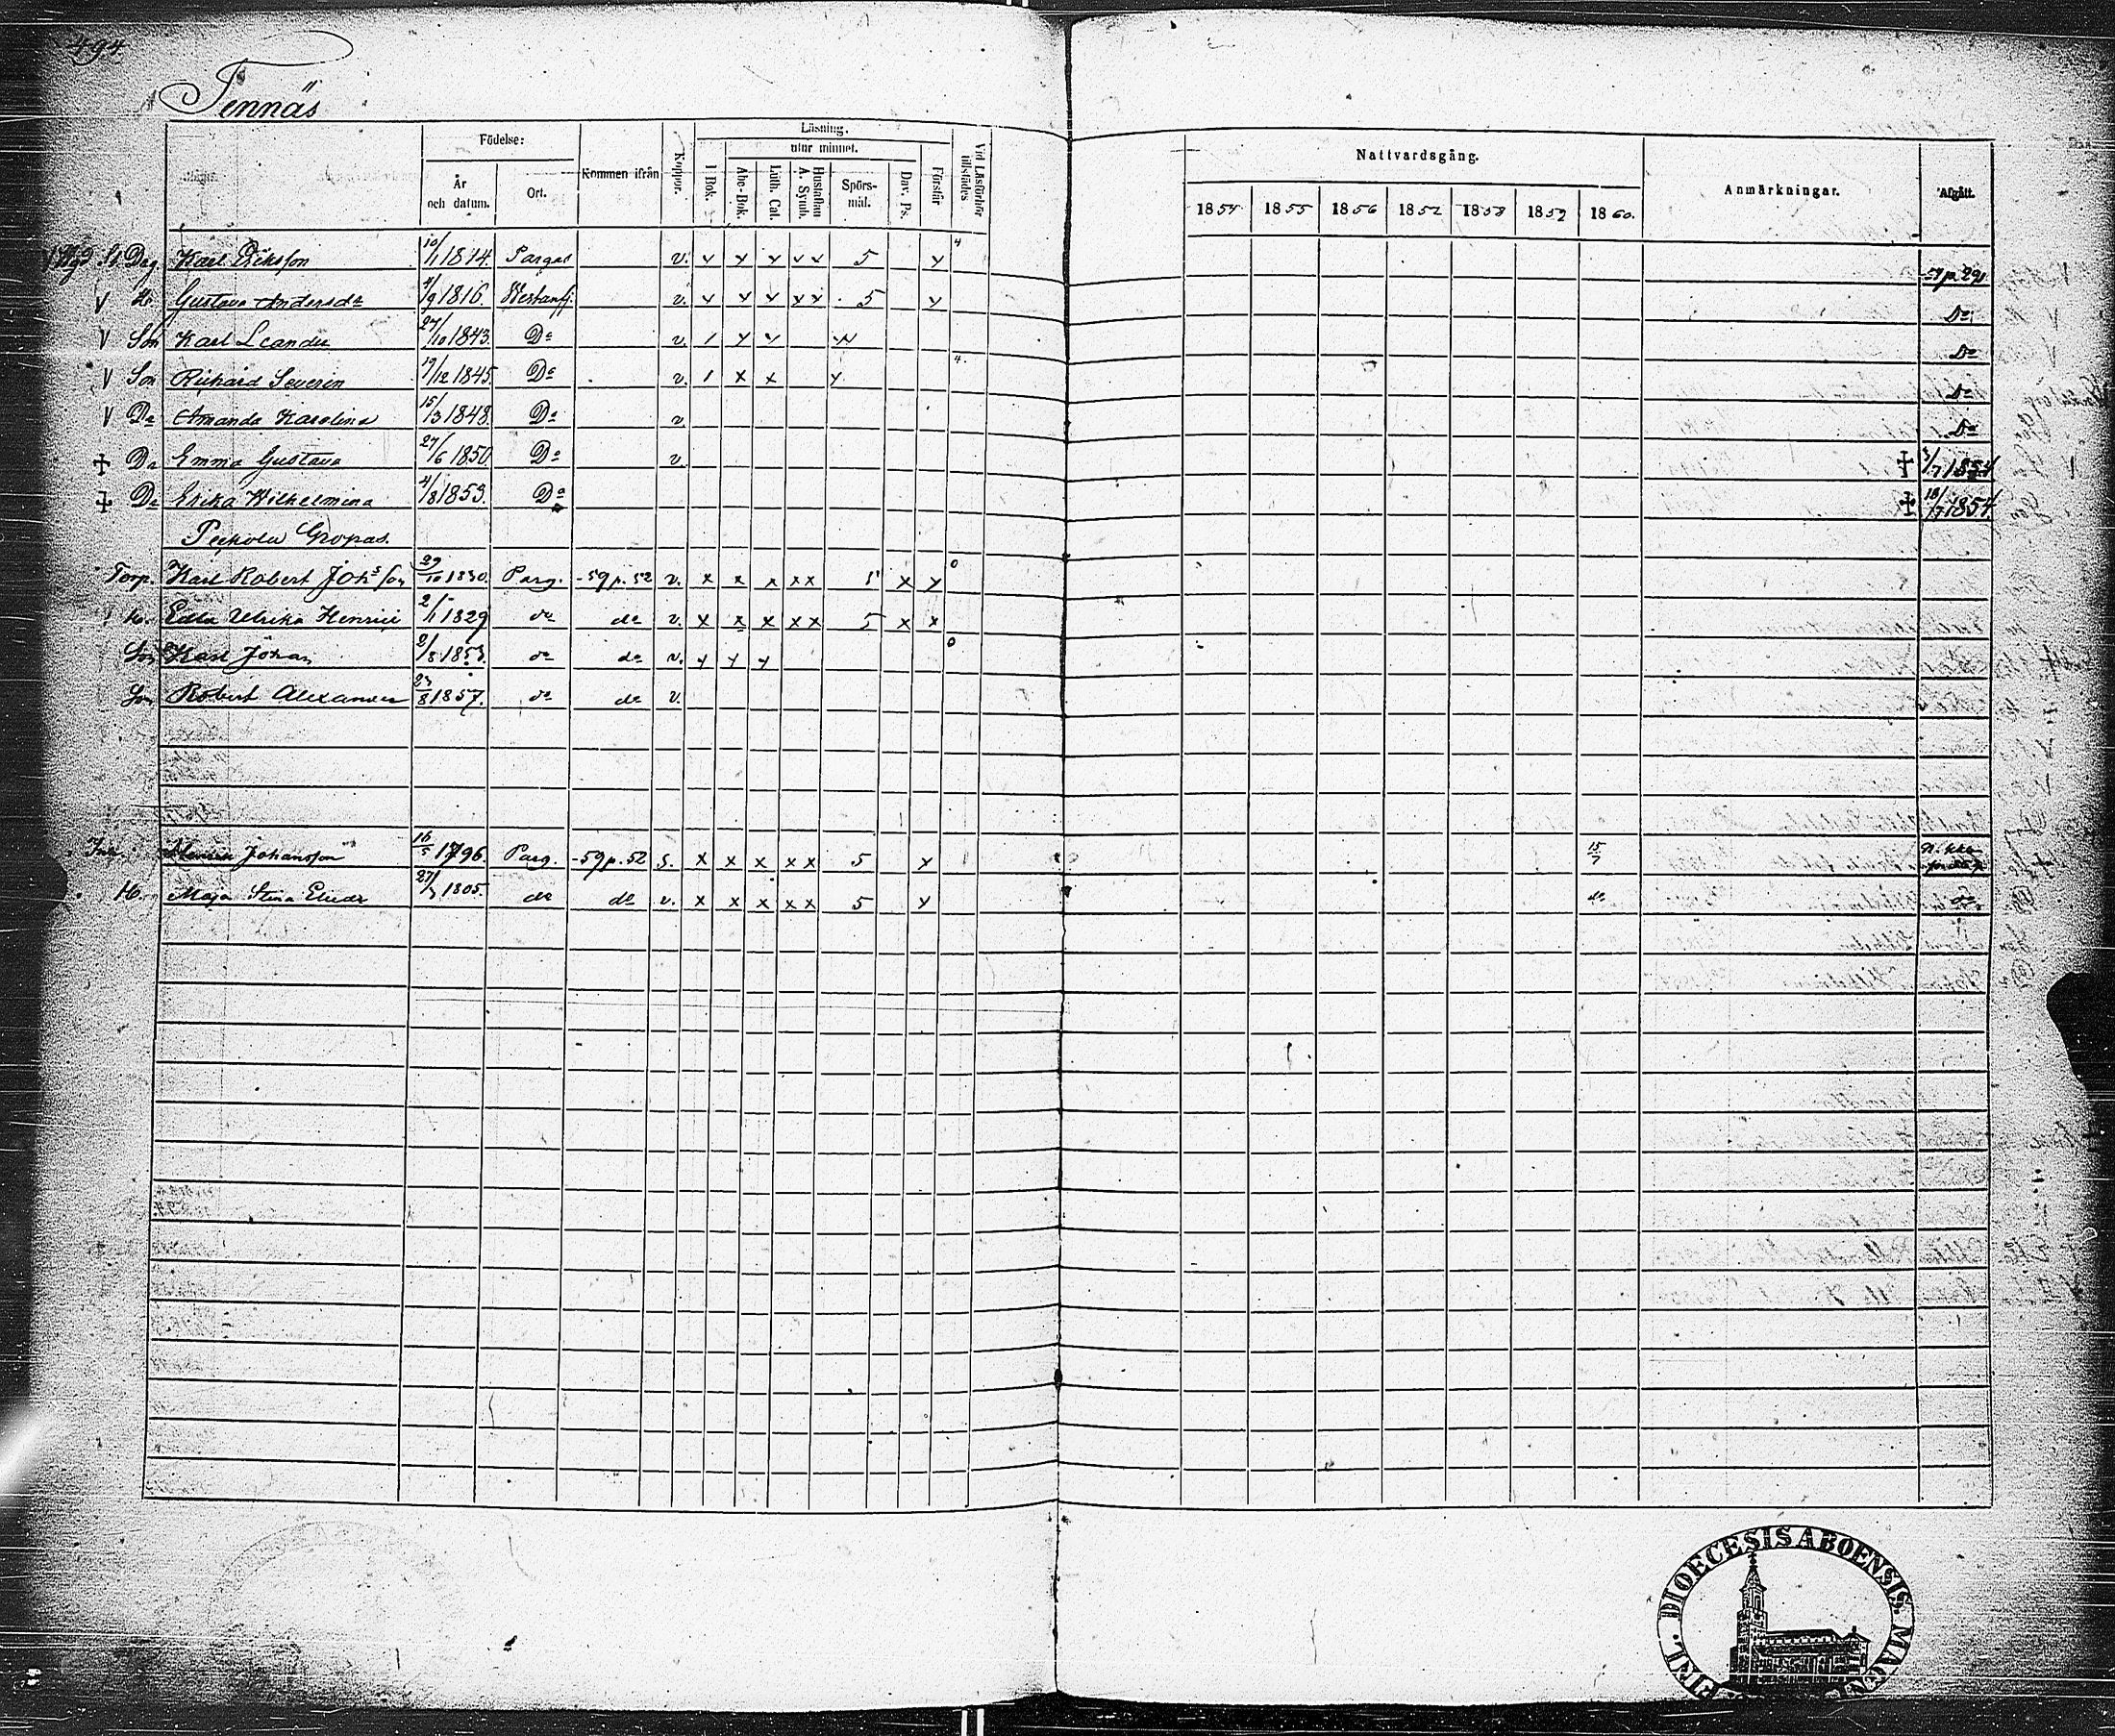 494
Tennäs
Födelse: Kommen ifrån Koppor. Läsning. utur minnet. Vid Läsförhör tillstädes Nattvardsgång. Anmärkningar. Afgått.
År och datum. Ort. I Bok. Abc-Bok. Luth. Cat. Hustaflan A. Symb. Spörs-mål. Dav. Ps. Förstår 1854 1855 1856 1857 1858 1859 1860.
Dag Karl Eriksson 10/1 1814. Pargas v. 5 4
V H. Gustava Andersdr 4/9 1816. Westanfj. v. 5 Do
V Son Karl Leander 27/10 1843. Do v. Do
V Son Richard Severin 19/12 1845. Do v. 4. Do
V Dr Amanda Karolina 15/3 1848. Do v. Do
+ Dr Emma Gustava 27/6 1850. Do v. + 3/7 1854
+ Dr Erika Wilhelmina 4/8 1853. Do + 18/7 1854.
Gropas.
Torp. Karl Robert Johsson 29/10 1830. Parg. -59 p. 52 v. x x x x x 5 x 0
H. Edla Ulrika Henrici 2/1 1829 do do v. x x x x x 5 x x
Son Karl Johan 2/8 1853. do do v. 0
Son Robert Alexander 23/8 1857. do do v.
Johansson 16/5 1796. Parg. -59 p. 52 s. x x x x x 5 15/7
H. Maja Stina 27/ 1805. do do v. x x x x x 5 do do
DIOECESIS ABOENSIS. MAGN